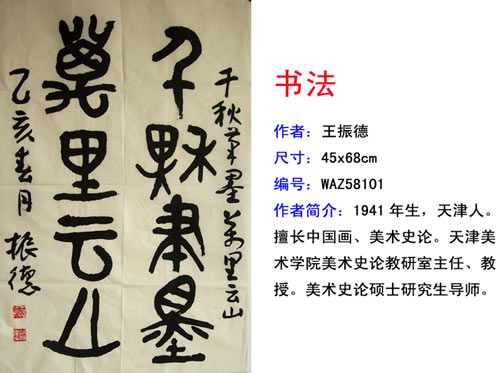 千秋聿墨
千秋笔墨万里云山
萬里云山
乙亥春月 振德
书法
作者：王振德
尺寸：45x68cm
编号：WAZ58101
作者简介：1941 年生，天津人。
擅长中国画、美术史论。天津美
术学院美术史论教研室主任、教
授。美术史论硕士研究生导师。